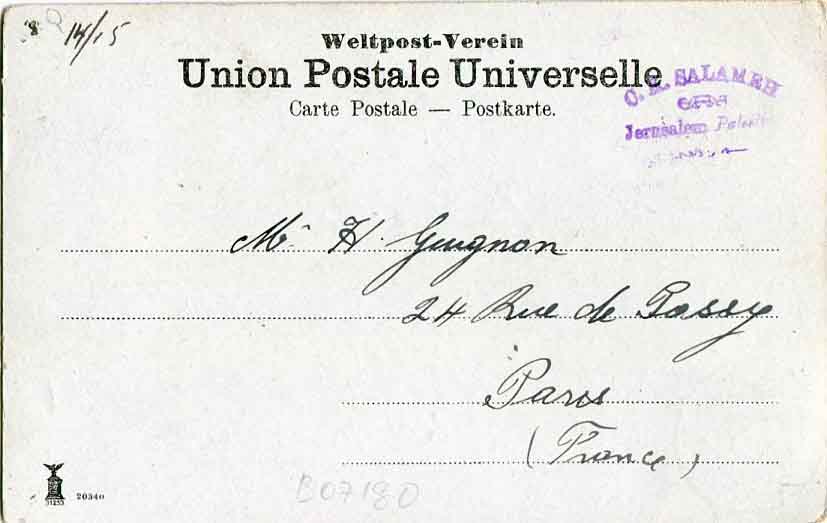 14/15
Weltpost-Verein
Union Postale Universelle
Carte Postale — Postkarte.
SALAMEH
Jerusalem Palesti
Mr H. Guignon
24 Rue de Passy
Paris
(France)
20340
B07180